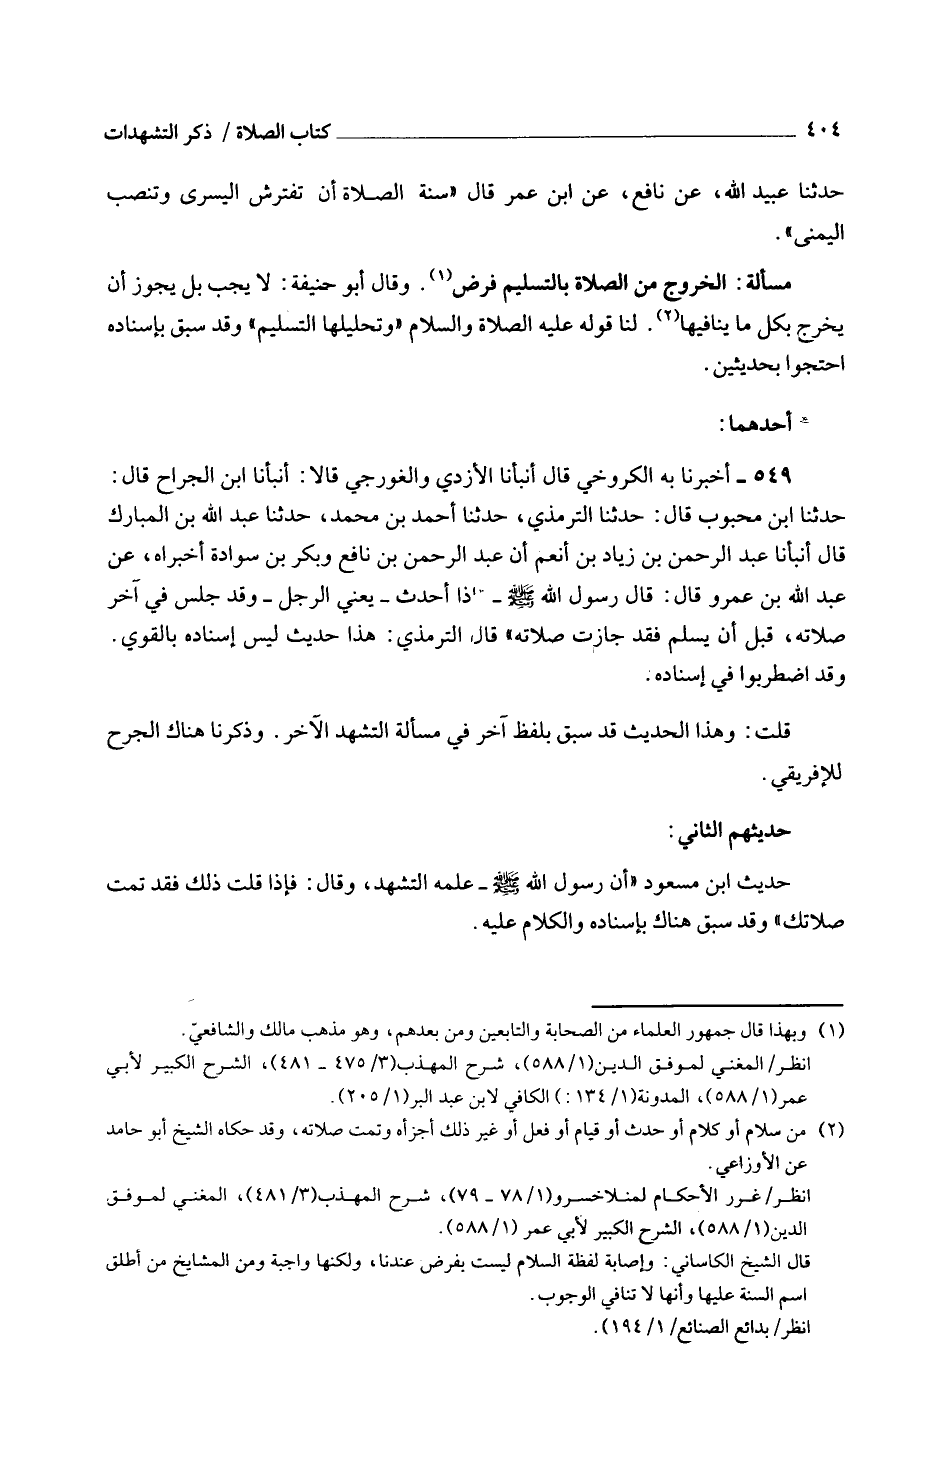 ٤٠٤ كتاب الصلاة / ذكر التشهدات
حدثنا عبيد الله، عن نافع، عن ابن عمر قال «سنة الصلاة أن تفترش اليسرى وتنصب
اليمنى».
مسألة: الخروج من الصلاة بالتسليم فرض(١). وقال أبو حنيفة: لا يجب بل يجوز أن
يخرج بكل ما ينافيها(٢). لنا قوله عليه الصلاة والسلام «وتحليلها التسليم» وقد سبق بإسناده
احتجوا بحديثين.
* أحدهما:
٥٤٩ ـ أخبرنا به الكروخي قال أنبأنا الأزدي والغورجي قالا: أنبأنا ابن الجراح قال:
حدثنا ابن محبوب قال: حدثنا الترمذي، حدثنا أحمد بن محمد، حدثنا عبد الله بن المبارك
قال أنبأنا عبد الرحمن بن زياد بن أنعم أن عبد الرحمن بن نافع وبكر بن سوادة أخبراه، عن
عبد الله بن عمرو قال: قال رسول الله ﷺ ـ «إذا أحدث ـ يعني الرجل ـ وقد جلس في آخر
صلاته، قبل أن يسلم فقد جازت صلاته» قال الترمذي: هذا حديث ليس إسناده بالقوي.
وقد اضطربوا في إسناده.
قلت: وهذا الحديث قد سبق بلفظ آخر في مسألة التشهد الآخر. وذكرنا هناك الجرح
للإفريقي.
حديثهم الثاني:
حديث ابن مسعود «أن رسول الله ﷺ ـ علمه التشهد، وقال: فإذا قلت ذلك فقد تمت
صلاتك» وقد سبق هناك بإسناده والكلام عليه.
(١) وبهذا قال جمهور العلماء من الصحابة والتابعين ومن بعدهم، وهو مذهب مالك والشافعيّ.
انظر/ المغني لموفق الدين(١/ ٥٨٨)، شرح المهذب(٣/ ٤٧٥ ـ ٤٨١)، الشرح الكبير لأبي
عمر(١/ ٥٨٨)، المدونة(١/ ١٣٤ :) الكافي لابن عبد البر(١/ ٢٠٥).
(٢) من سلام أو كلام أو حدث أو قيام أو فعل أو غير ذلك أجزأه وتمت صلاته، وقد حكاه الشيخ أبو حامد
عن الأوزاعي.
انظر/ غرر الأحكام لمنلاخسرو(١/ ٧٨ ـ ٧٩)، شرح المهذب(٣/ ٤٨١)، المغني لموفق
الدين(١/ ٥٨٨)، الشرح الكبير لأبي عمر (١/ ٥٨٨).
قال الشيخ الكاساني: وإصابة لفظة السلام ليست بفرض عندنا، ولكنها واجبة ومن المشايخ من أطلق
اسم السنة عليها وأنها لا تنافي الوجوب.
انظر/ بدائع الصنائع/ ١/ ١٩٤).